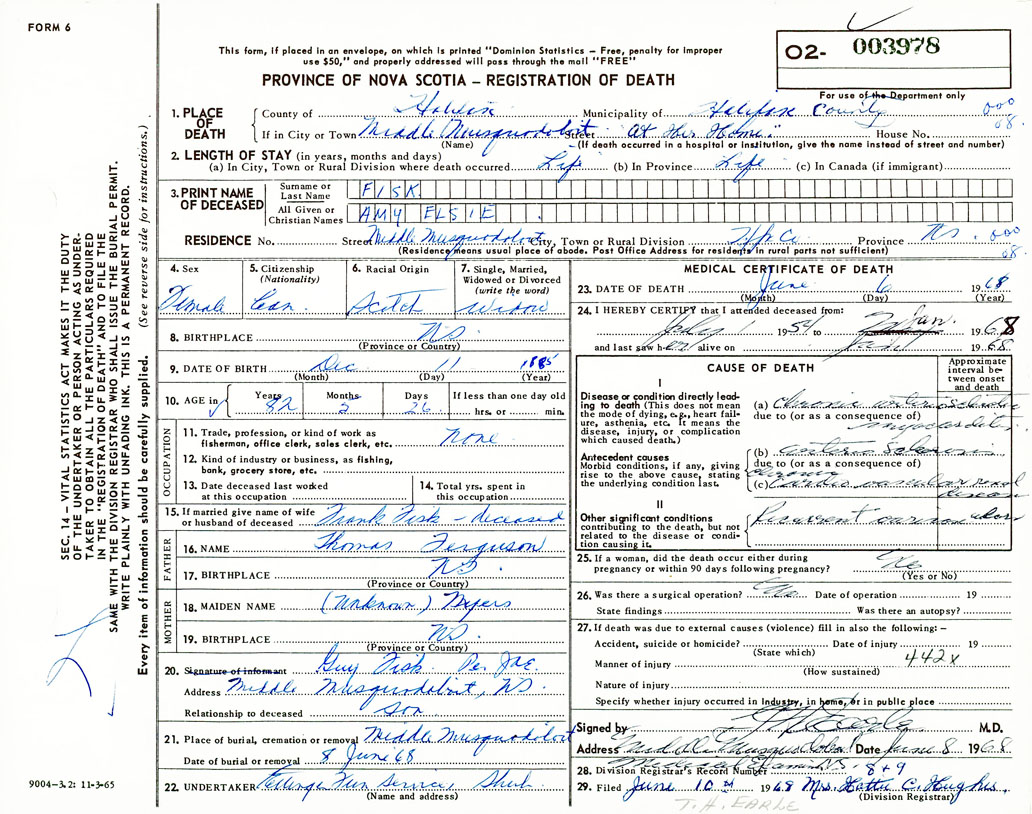 FORM 6
This form, if placed in an envelope, on which is printed "Dominion Statistics – Free, penalty for improper
use $50," and properly addressed will pass through the mail "FREE"
PROVINCE OF NOVA SCOTIA – REGISTRATION OF DEATH
02- 003978
For use of the Department only
1. PLACE OF DEATH
County of Halifax Municipality of Halifax County 000
If in City or Town Middle Musquodoboit Street "At Her Home." House No. 08.
(Name) (If death occurred in a hospital or institution, give the name instead of street and number)
2. LENGTH OF STAY (in years, months and days)
(a) In City, Town or Rural Division where death occurred Life (b) In Province Life (c) In Canada (if immigrant)
3. PRINT NAME OF DECEASED
Surname or Last Name FISK
All Given or Christian Names AMY ELSIE
RESIDENCE No. Street Middle Musquodoboit City, Town or Rural Division Hfx Co Province NS. 000
(Residence means usual place of abode. Post Office Address for residents in rural parts not sufficient) 08.
4. Sex Female
5. Citizenship (Nationality) Can.
6. Racial Origin Scotch
7. Single, Married, Widowed or Divorced (write the word) Widow
8. BIRTHPLACE NS.
(Province or Country)
9. DATE OF BIRTH Dec 11 1885
(Month) (Day) (Year)
10. AGE in Years 82 Months Days 26 If less than one day old hrs. or min.
OCCUPATION
11. Trade, profession, or kind of work as fisherman, office clerk, sales clerk, etc. none
12. Kind of industry or business, as fishing, bank, grocery store, etc.
13. Date deceased last worked at this occupation
14. Total yrs. spent in this occupation
15. If married give name of wife or husband of deceased Frank Fisk – deceased
FATHER
16. NAME Thomas Ferguson
17. BIRTHPLACE NS.
(Province or Country)
MOTHER
18. MAIDEN NAME (Unknown) Byers
19. BIRTHPLACE NS.
(Province or Country)
20. Signature of informant Guy Fisk Per
Address Middle Musquodoboit, NS.
Relationship to deceased Son
21. Place of burial, cremation or removal Middle Musquodoboit
Date of burial or removal 8 June 68
22. UNDERTAKER Fun Service,
(Name and address)
MEDICAL CERTIFICATE OF DEATH
23. DATE OF DEATH June 6 1968
(Month) (Day) (Year)
24. I HEREBY CERTIFY that I attended deceased from:
July 1 1954 to Jan. 1968
and last saw her alive on 1968
CAUSE OF DEATH
Approximate interval between onset and death
I
Disease or condition directly leading to death (This does not mean the mode of dying, e.g., heart failure, asthenia, etc. It means the disease, injury, or complication which caused death.)
(a) Chronic
due to (or as a consequence of)
Antecedent causes
Morbid conditions, if any, giving rise to the above cause, stating the underlying condition last.
(b) arterio Sclerosis
due to (or as a consequence of)
chronic
(c) Cardio vascular renal
disease
II
Other significant conditions contributing to the death, but not related to the disease or condition causing it.
Recurrent
25. If a woman, did the death occur either during pregnancy or within 90 days following pregnancy? No
(Yes or No)
26. Was there a surgical operation? No Date of operation 19
State findings Was there an autopsy?
27. If death was due to external causes (violence) fill in also the following: –
Accident, suicide or homicide? Date of injury 19
(State which) 442x
Manner of injury
(How sustained)
Nature of injury
Specify whether injury occurred in Industry, in home, or in public place
Signed by M.D.
Address Middle Musquodoboit Date June 8 1968
Medical Examiner
28. Division Registrar's Record Number 8+9
29. Filed June 10th 1968 Mrs. Hattie C. Hughes
(Division Registrar)
T. H. EARLE
9004–3.2: 11-3-65
SEC. 14 – VITAL STATISTICS ACT MAKES IT THE DUTY
OF THE UNDERTAKER OR PERSON ACTING AS UNDER-
TAKER TO OBTAIN ALL THE PARTICULARS REQUIRED
IN THE "REGISTRATION OF DEATH" AND TO FILE THE
SAME WITH THE DIVISION REGISTRAR WHO SHALL ISSUE THE BURIAL PERMIT.
WRITE PLAINLY WITH UNFADING INK. THIS IS A PERMANENT RECORD.
Every item of information should be carefully supplied. (See reverse side for instructions.)